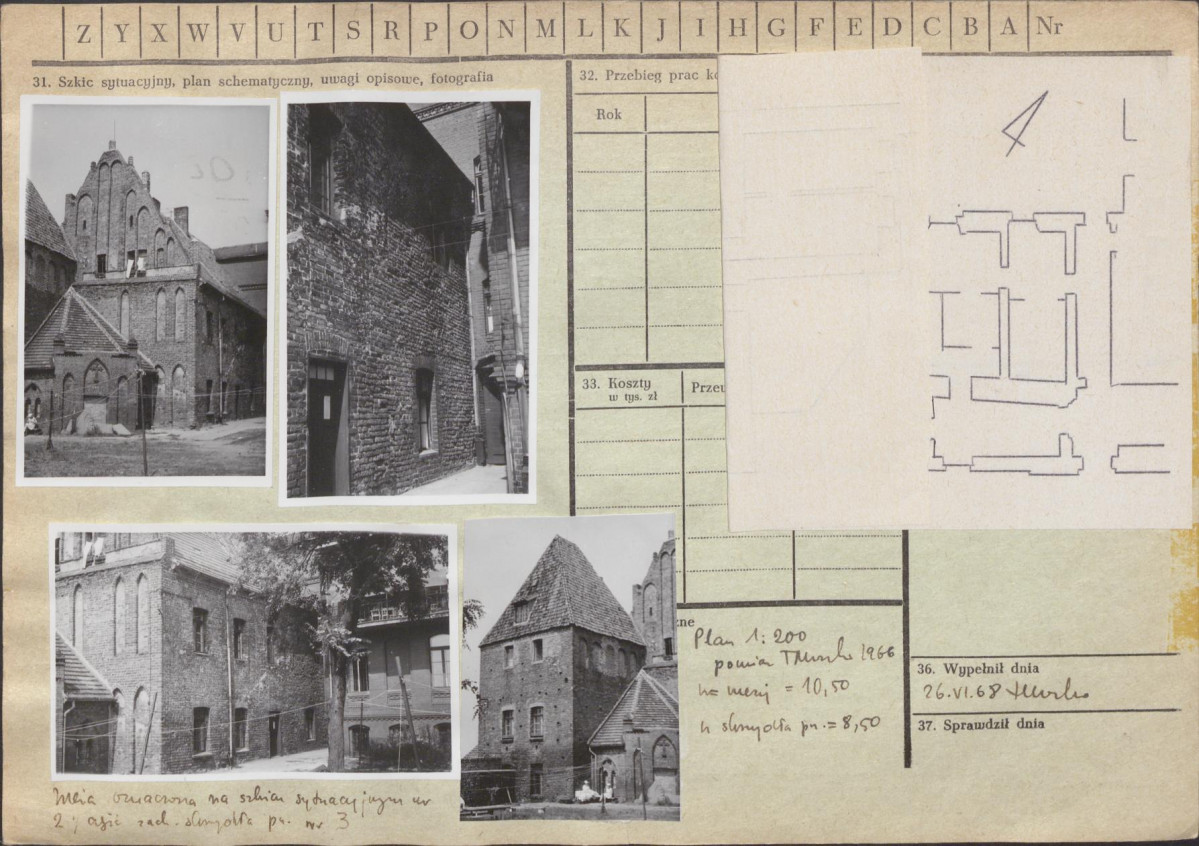 Z Y X W V U T S R P O N M L K J I H G F E D C B A Nr
31. Szkic sytuacyjny, plan schematyczny, uwagi opisowe, fotografia
32. Przebieg prac
Rok
33. Koszty
w tys. zł
Plan 1:200
1966
= 10,50
skrzydła pn. = 8,50
36. Wypełnił dnia
26.VI.68
37. Sprawdził dnia
oznaczona na szkicu sytuacyjnym nr
2 i część zach. skrzydła pn. nr 3